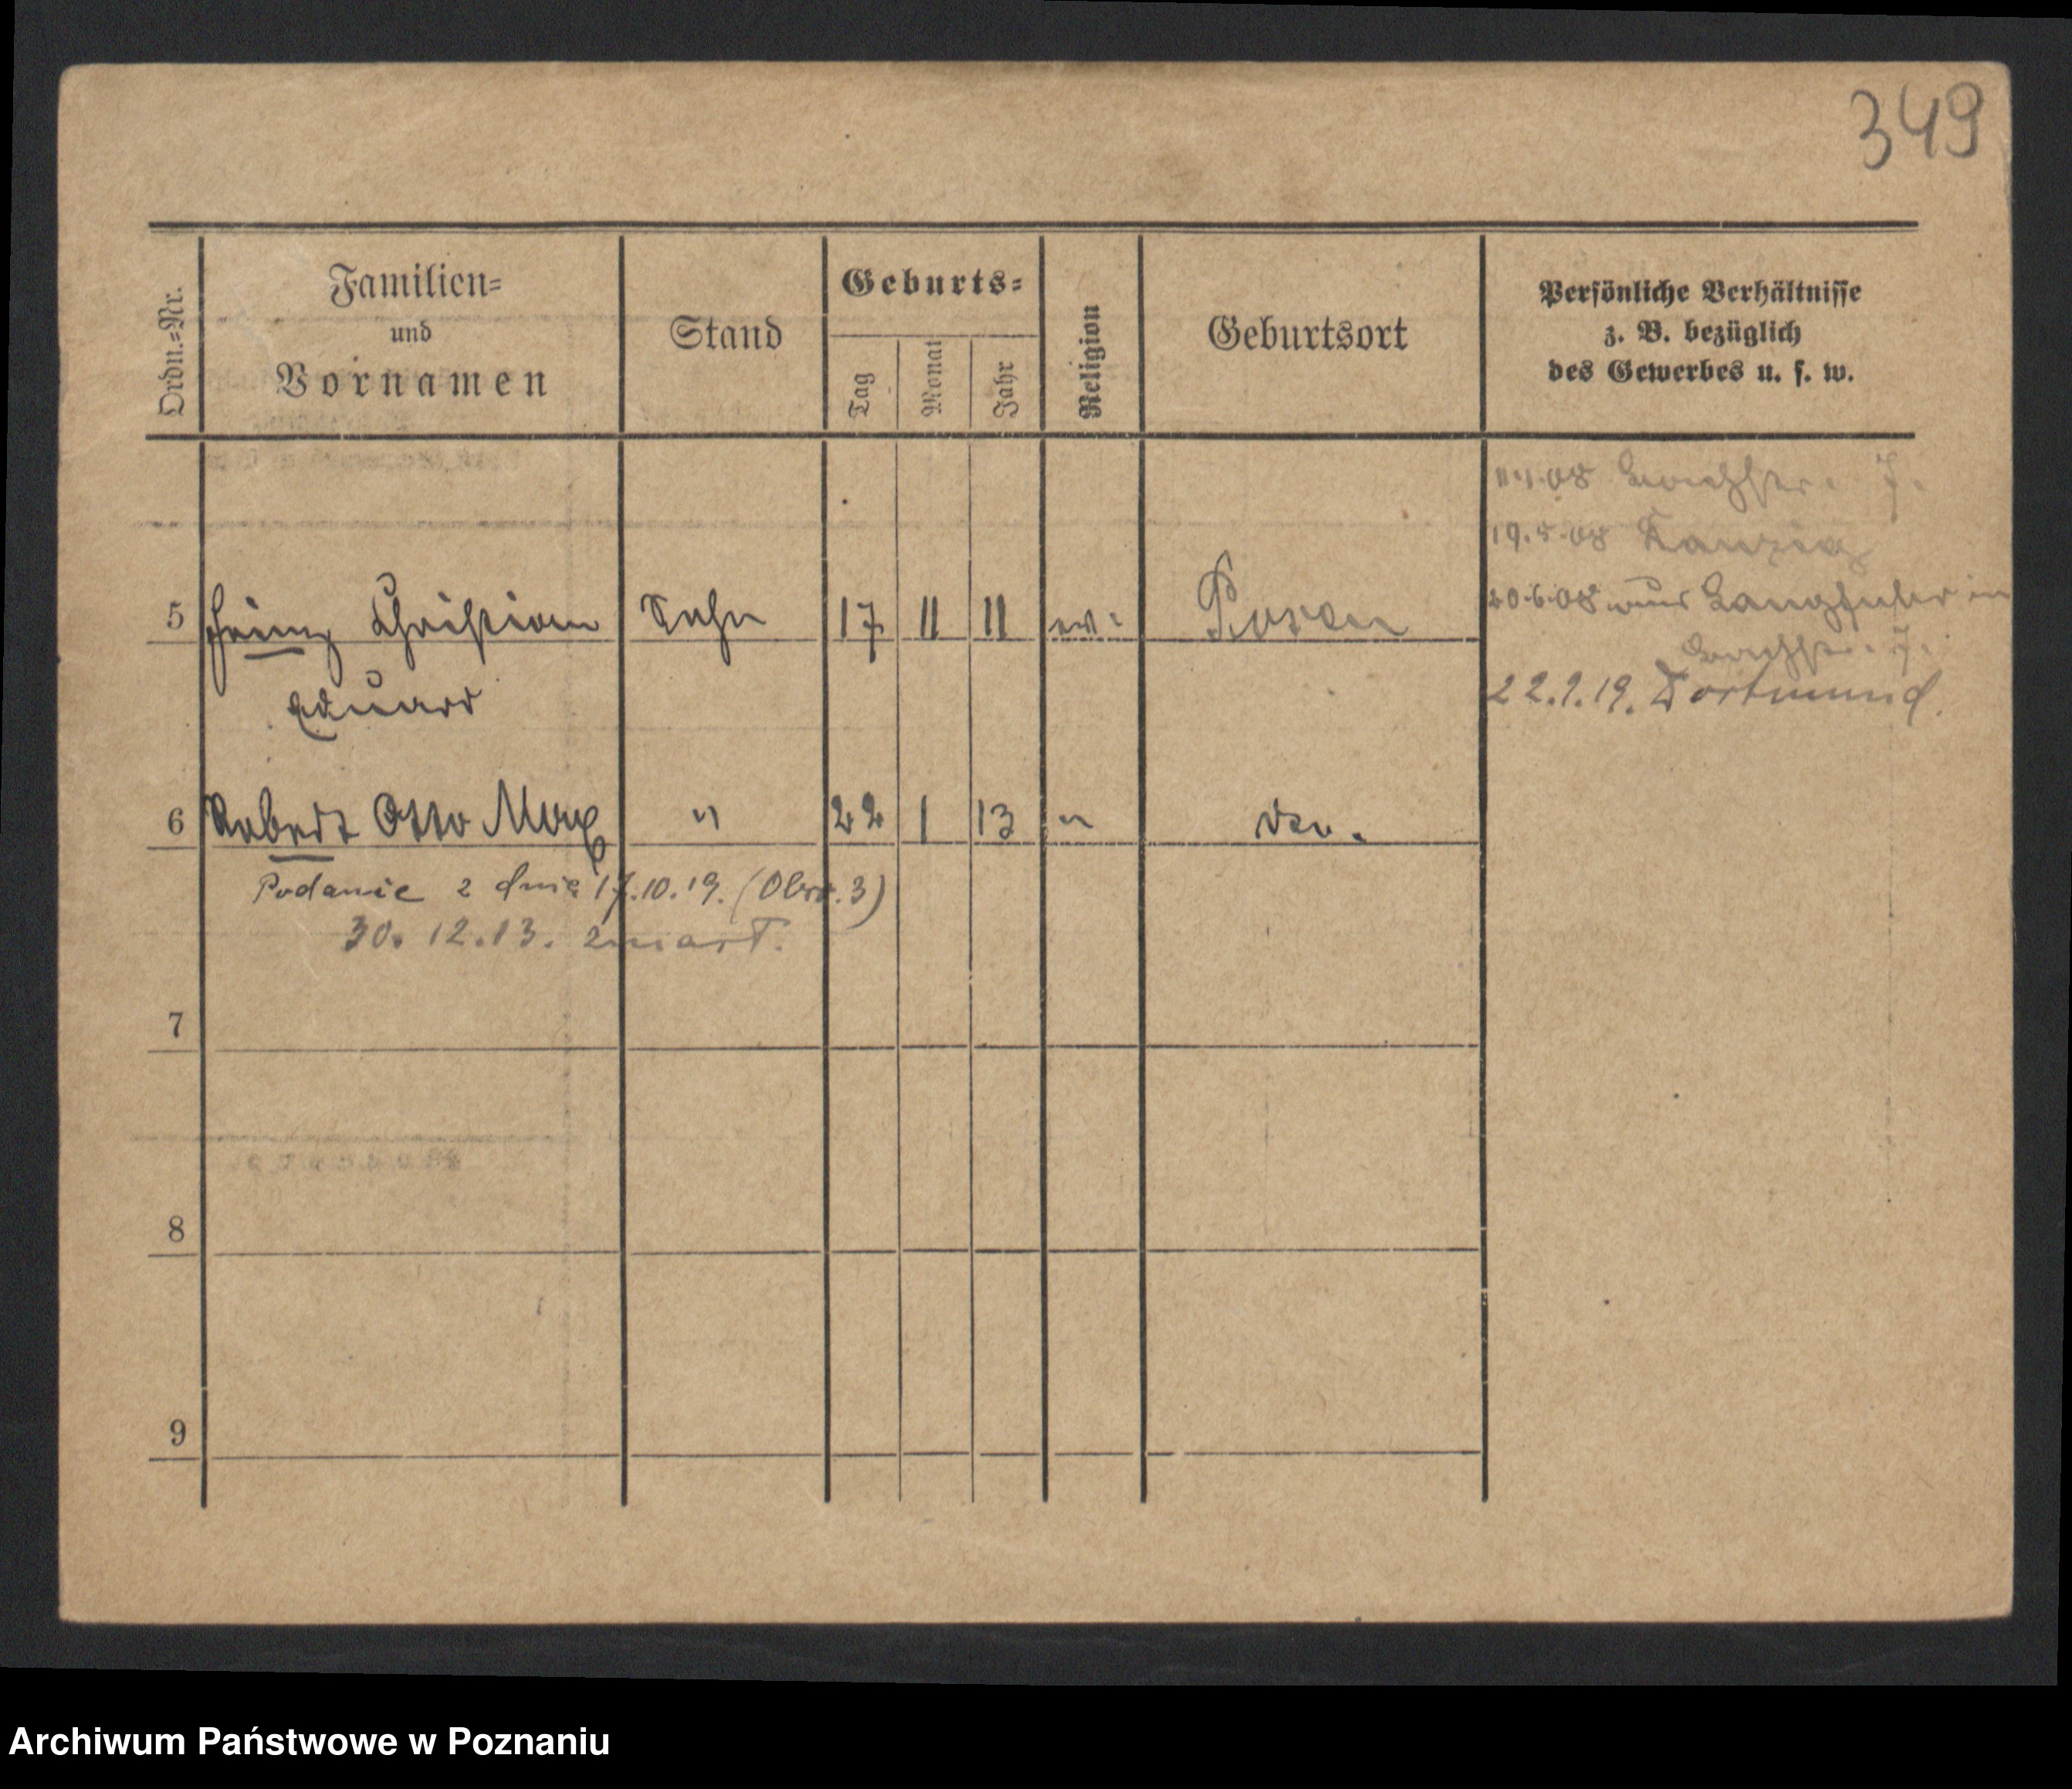 349
Ordn.=Nr.
Familien=
und
Vornamen
Stand
Geburts=
Tag
Monat
Jahr
Religion
Geburtsort
Persönliche Verhältnisse
z. B. bezüglich
des Gewerbes u. s. w.
11.1.08 7.
19.5.08 Danzig
20.6.08 aus Langfuhr in
7.
22.9.19. Dortmund.
5 Heinz Christian Sohn 17 11 11 ev. Posen
Eduard
6 Robert Otto Max " 22 1 13 " do.
Podanie z dnia 17.10.19. (Obr. 3)
30. 12. 13. zmarł.
7
8
9
Archiwum Państwowe w Poznaniu